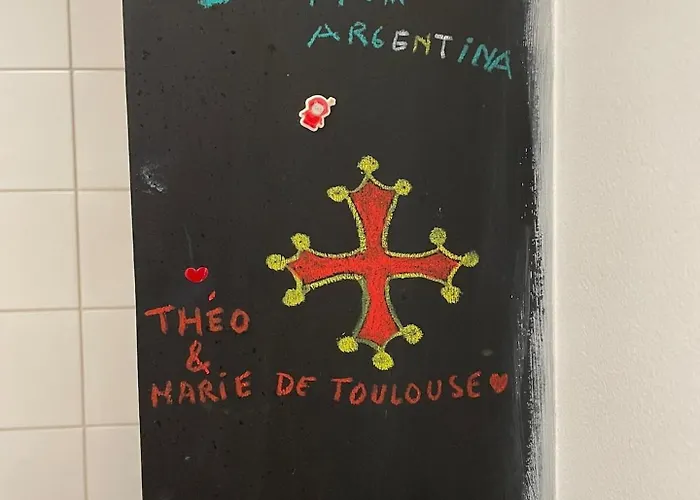 ARGENTINA
THÉO
&
MARIE DE TOULOUSE